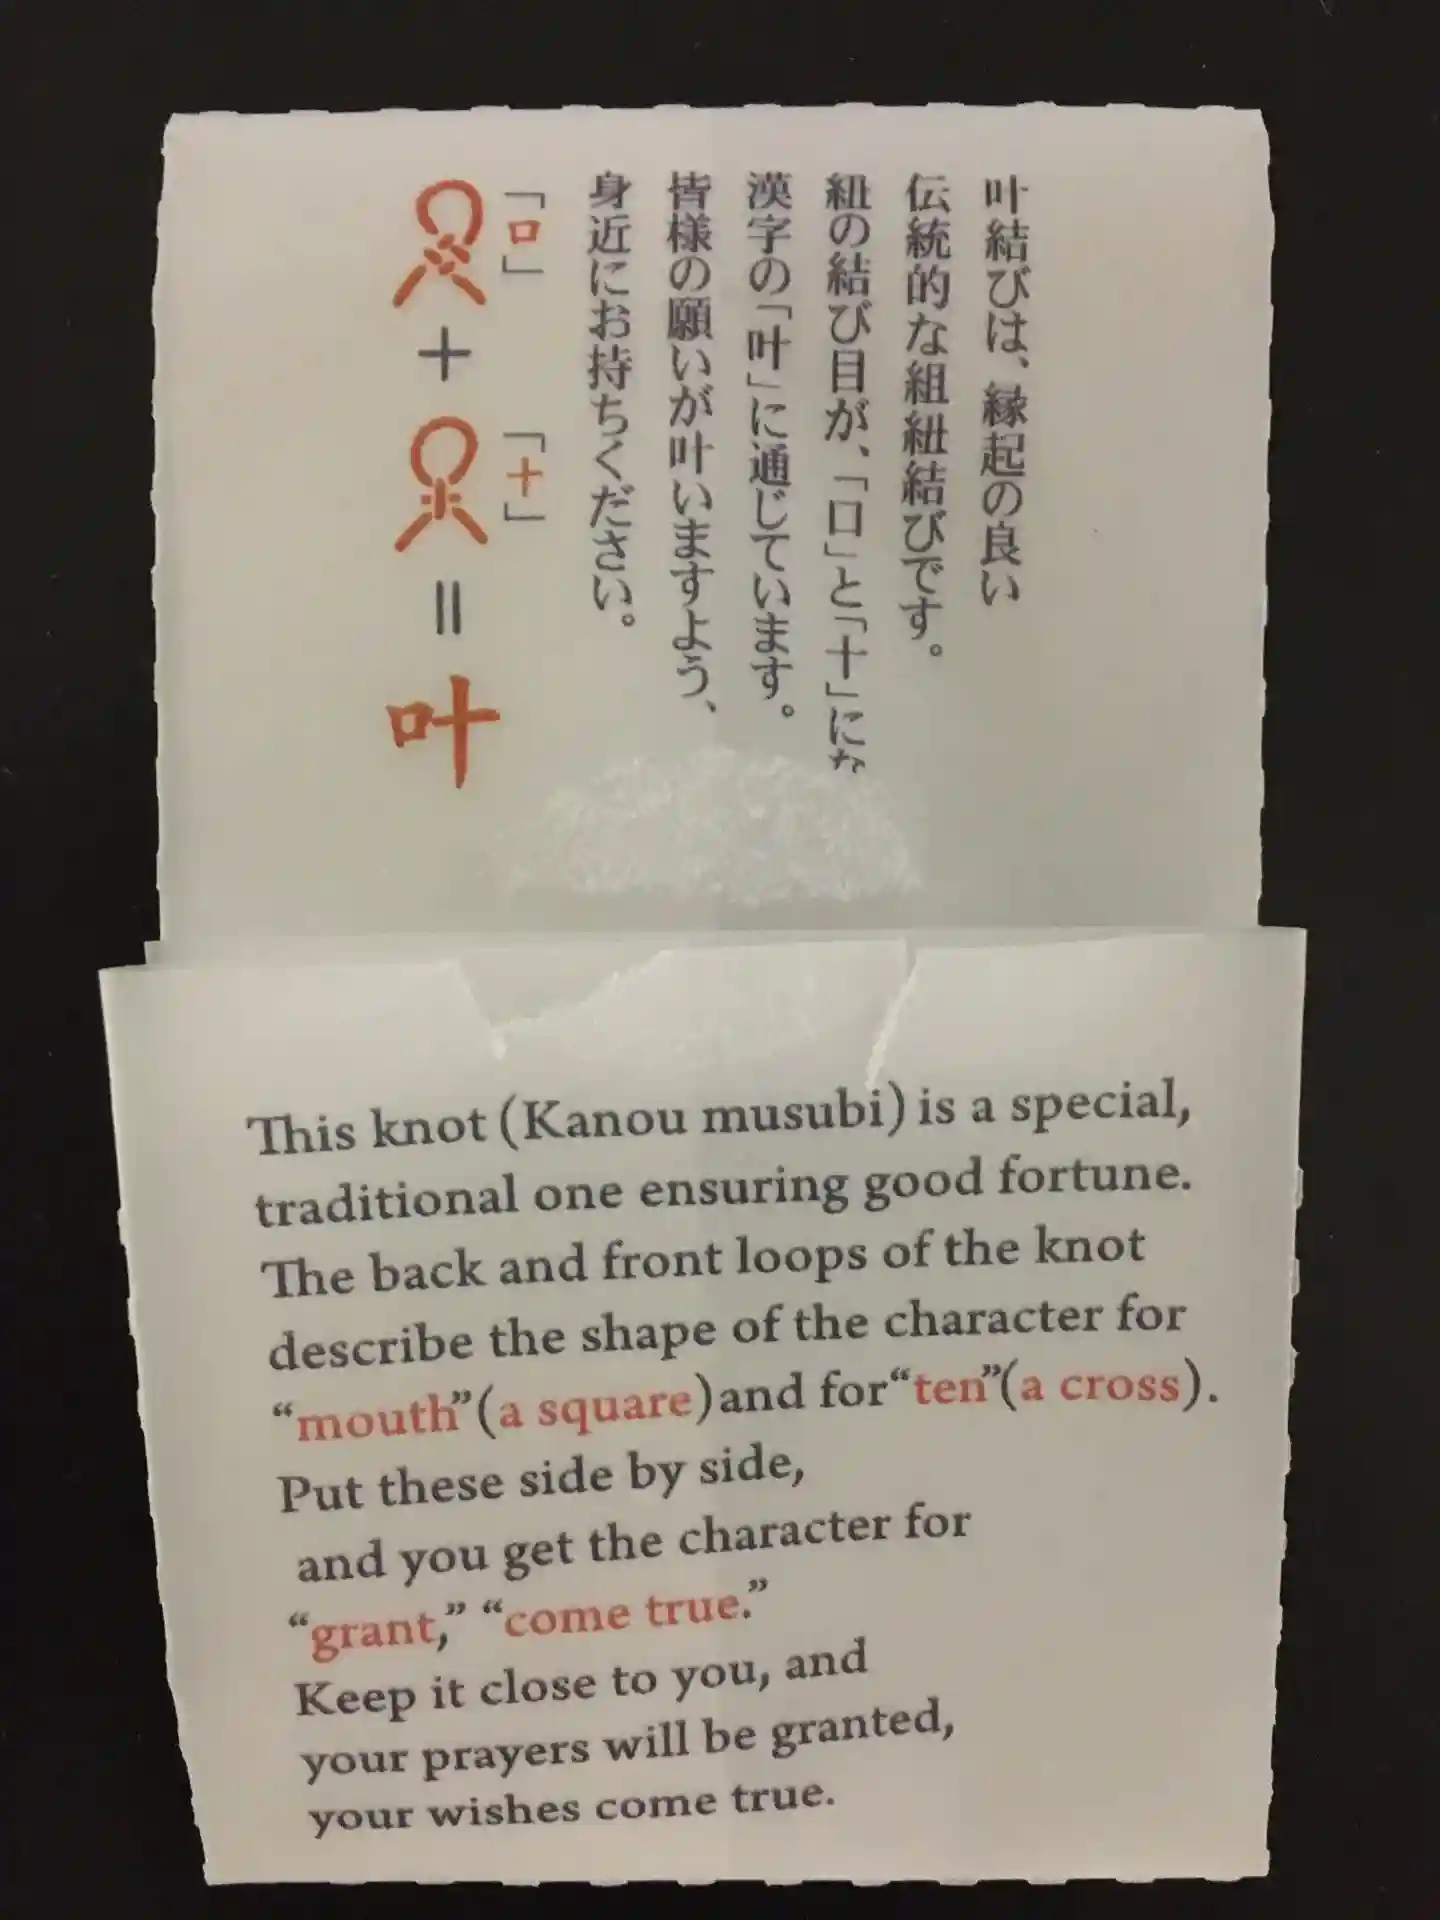 叶結びは、縁起の良い
伝統的な組紐結びです。
紐の結び目が、「口」と「十」にな
漢字の「叶」に通じています。
皆様の願いが叶いますよう、
身近にお持ちください。
「口」
「十」
+
=
叶
This knot (Kanou musubi) is a special,
traditional one ensuring good fortune.
The back and front loops of the knot
describe the shape of the character for
“mouth”(a square)and for“ten”(a cross).
Put these side by side,
and you get the character for
“grant,” “come true.”
Keep it close to you, and
your prayers will be granted,
your wishes come true.